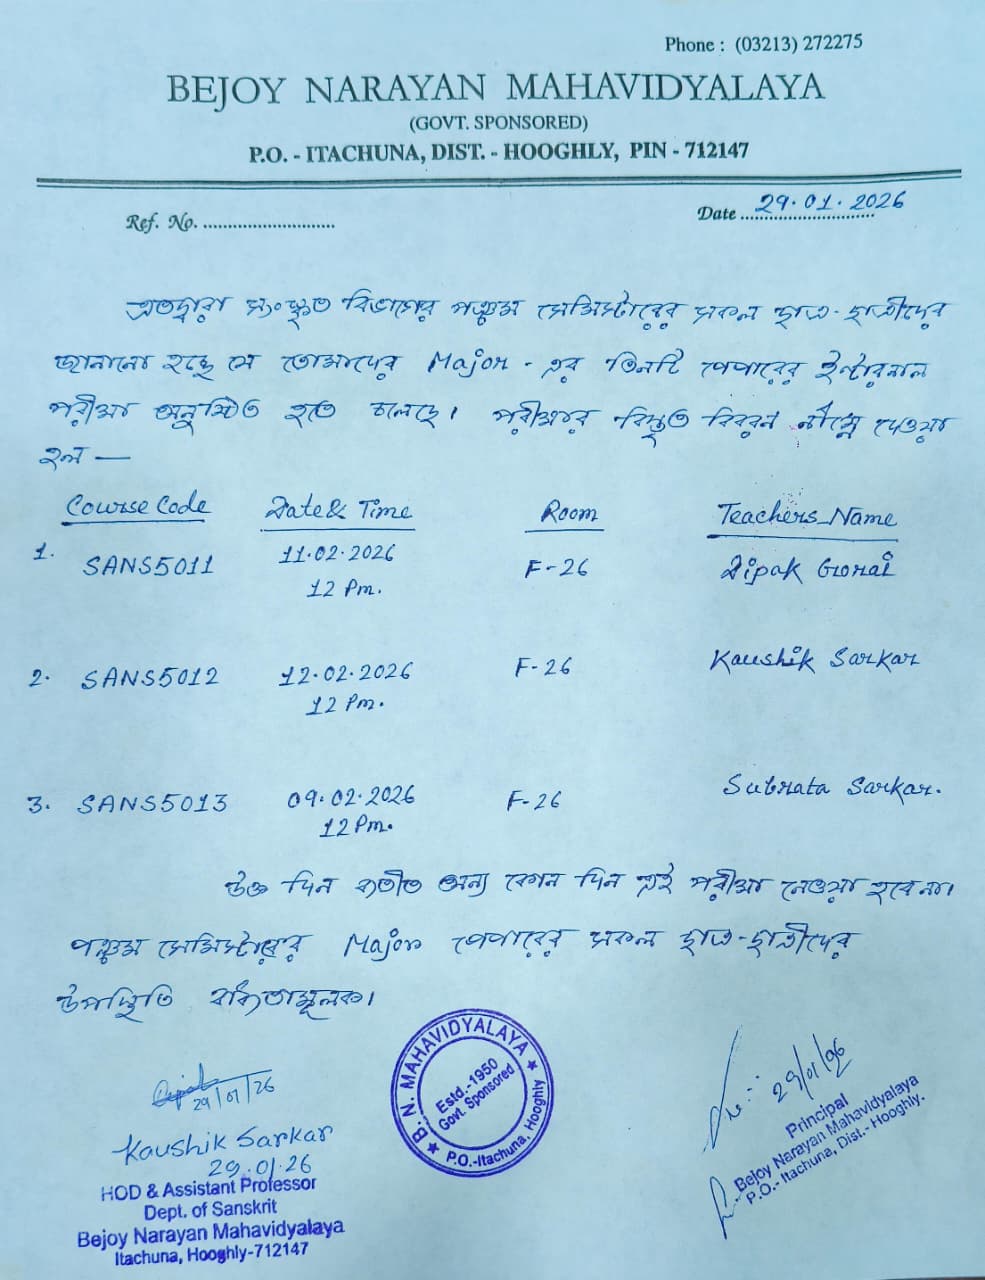 Phone : (03213) 272275
BEJOY NARAYAN MAHAVIDYALAYA
(GOVT. SPONSORED)
P.O. - ITACHUNA, DIST. - HOOGHLY, PIN - 712147
Ref. No. ............................ Date 29.01.2026
এতদ্বারা সংস্কৃত বিভাগের পঞ্চম সেমিস্টারের সকল ছাত্র-ছাত্রীদের
জানানো হচ্ছে যে তোমাদের Major - এর তিনটি পেপারের ইন্টারনাল
পরীক্ষা অনুষ্ঠিত হতে চলেছে। পরীক্ষার বিস্তৃত বিবরন নীম্নে দেওয়া
হল —
Course Code Date & Time Room Teachers Name
1. SANS5011 11.02.2026 F-26 Dipak Gorai
12 Pm.
2. SANS5012 12.02.2026 F-26 Kaushik Sarkar
12 Pm.
3. SANS5013 09.02.2026 F-26 Subrata Sarkar.
12 Pm.
উক্ত দিন ব্যতীত অন্য কোন দিন এই পরীক্ষা নেওয়া হবে না।
পঞ্চম সেমিস্টারের Major পেপারের সকল ছাত্র-ছাত্রীদের
উপস্থিতি বাধ্যতামূলক।
29/01/26
Kaushik Sarkar
29.01.26
HOD & Assistant Professor
Dept. of Sanskrit
Bejoy Narayan Mahavidyalaya
Itachuna, Hooghly-712147
B. N. MAHAVIDYALAYA
Estd.-1950
Govt. Sponsored
P.O.-Itachuna, Hooghly
29/01/26
Principal
Bejoy Narayan Mahavidyalaya
P.O.- Itachuna, Dist.- Hooghly.